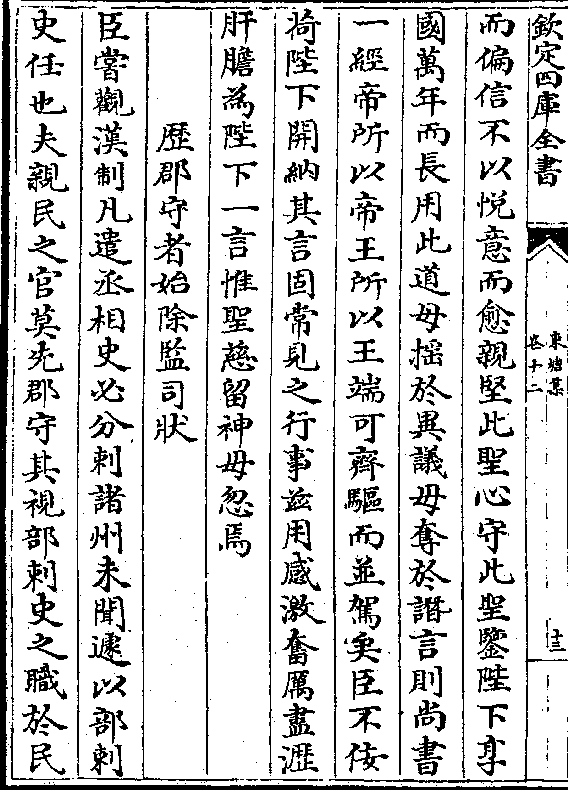 欽定四庫全書
東塘集
卷十二
十三
而偏信不以悦意而愈親堅此聖心守此聖鑒陛下享
國萬年而長用此道毋揺於異議毋奪於譖言則尚書
一經帝所以帝王所以王端可齊驅而並駕矣臣不佞
荷陛下開納其言固常見之行事兹用感激奮厲盡瀝
肝膽為陛下一言惟聖慈留神毋忽焉
歴郡守者始除監司狀
臣嘗觀漢制凡遣丞相史必分刺諸州未聞遽以部刺
史任也夫親民之官莫先郡守其視部刺史之職於民